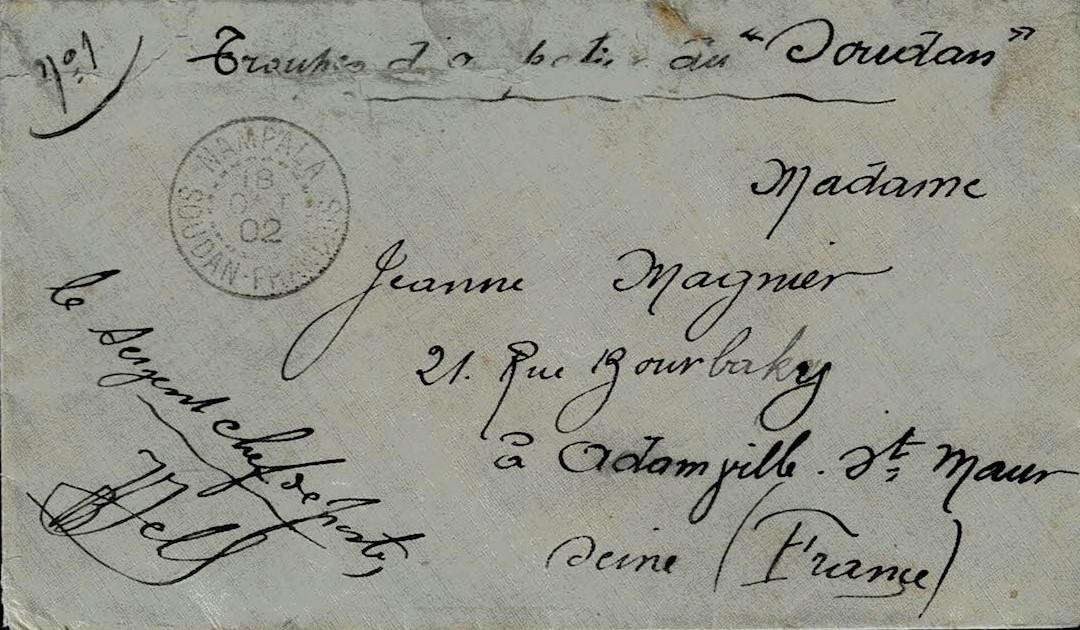 Nº 1
Troupes d'o du "Soudan"
NAMPALA
18
OCT
02
SOUDAN-FRANÇAIS
Madame
Jeanne Magnier
21. Rue Bourbaky
à Adamville. St Maur
Seine (France)
le sergent chef de poste,